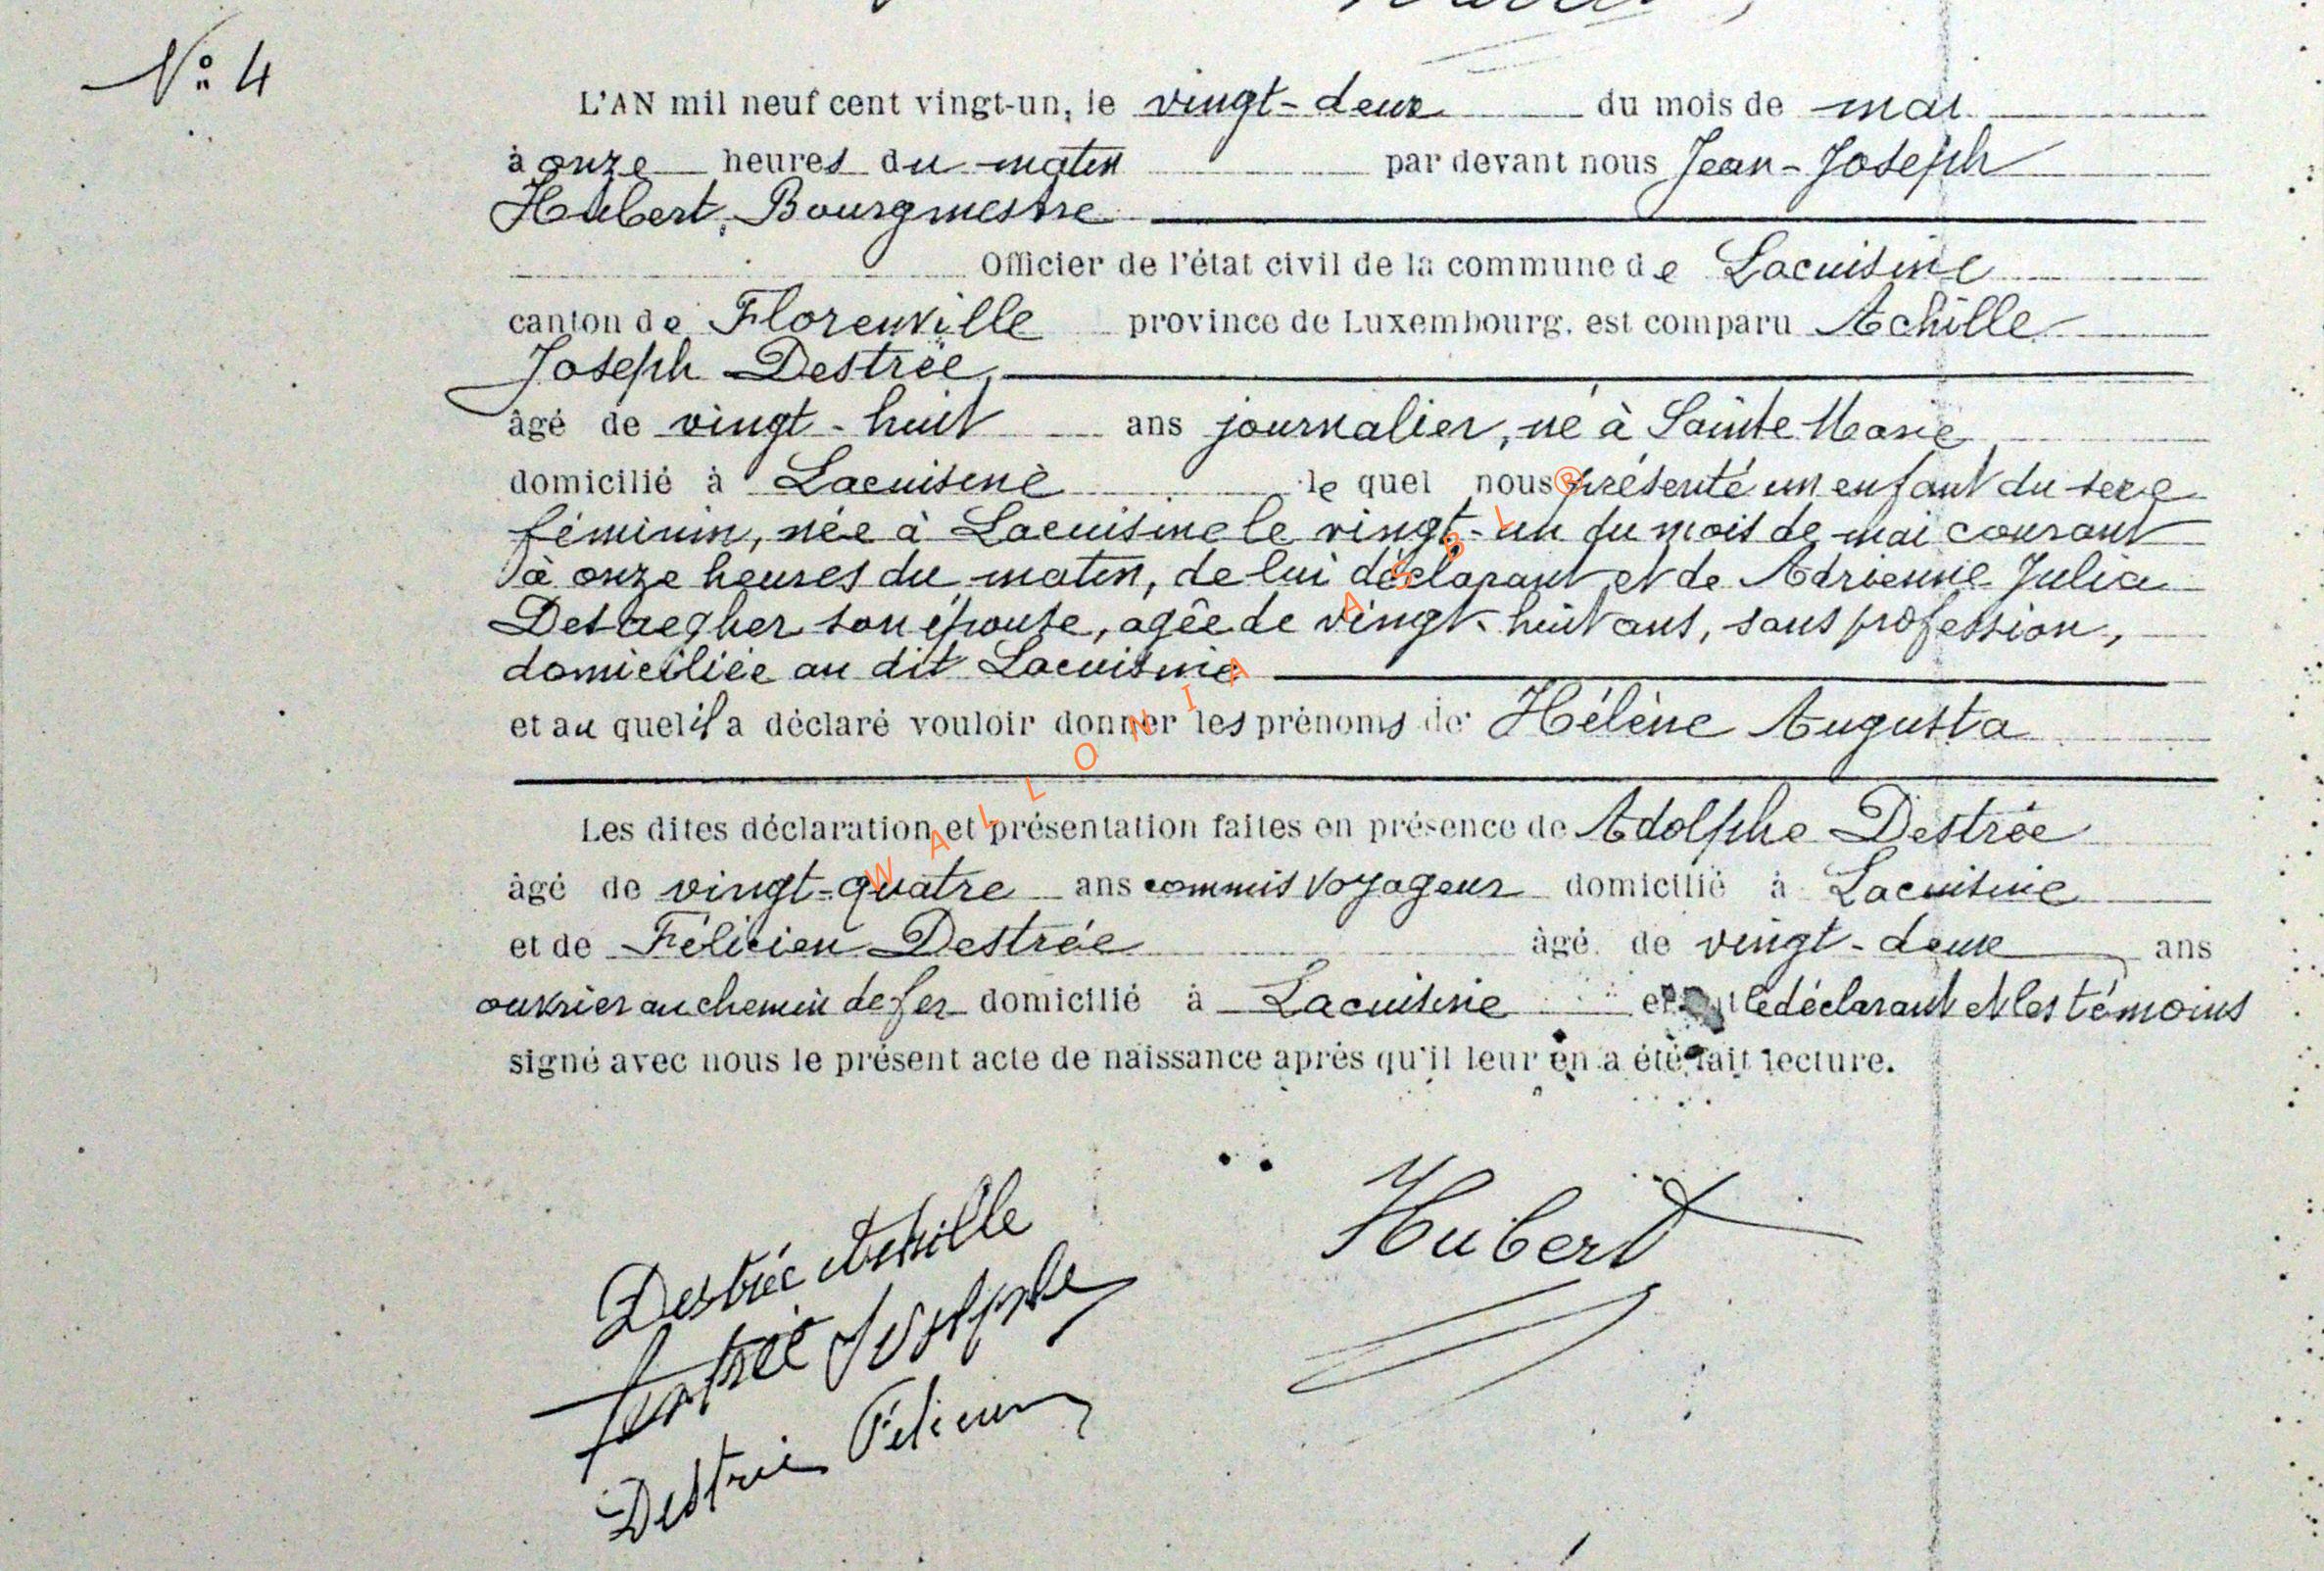 N° 4
L'AN mil neuf cent vingt-un, le vingt-deux du mois de mai
à onze heures du matin par devant nous Jean-Joseph
Hubert, Bourgmestre
Officier de l'état civil de la commune de Lacuisine
canton de Florenville province de Luxembourg, est comparu Achille
Joseph Destrée,
âgé de vingt-huit ans journalier, né à Sainte Marie
domicilié à Lacuisine le quel nous présenté un enfant du sexe
féminin, née à Lacuisine le vingt-un du mois de mai courant
à onze heures du matin, de lui déclarant et de Adrienne Julia
son épouse, agée de vingt-huit ans, sans profession,
domiciliée au dit Lacuisine
et au quel il a déclaré vouloir donner les prénoms de Hélène Augusta
Les dites déclaration et présentation faites en présence de Adolphe Destrée
âgé de vingt-quatre ans commis voyageur domicilié à Lacuisine
et de Félicien Destrée âgé de vingt-deux ans
ouvrier au chemin de fer domicilié à Lacuisine et le déclarant et les témoins
signé avec nous le présent acte de naissance après qu'il leur en a été fait lecture.
Destrée Achille
Hubert
Destrée Adolphe
Destrée Félicien
WALLONIA ASBL ®